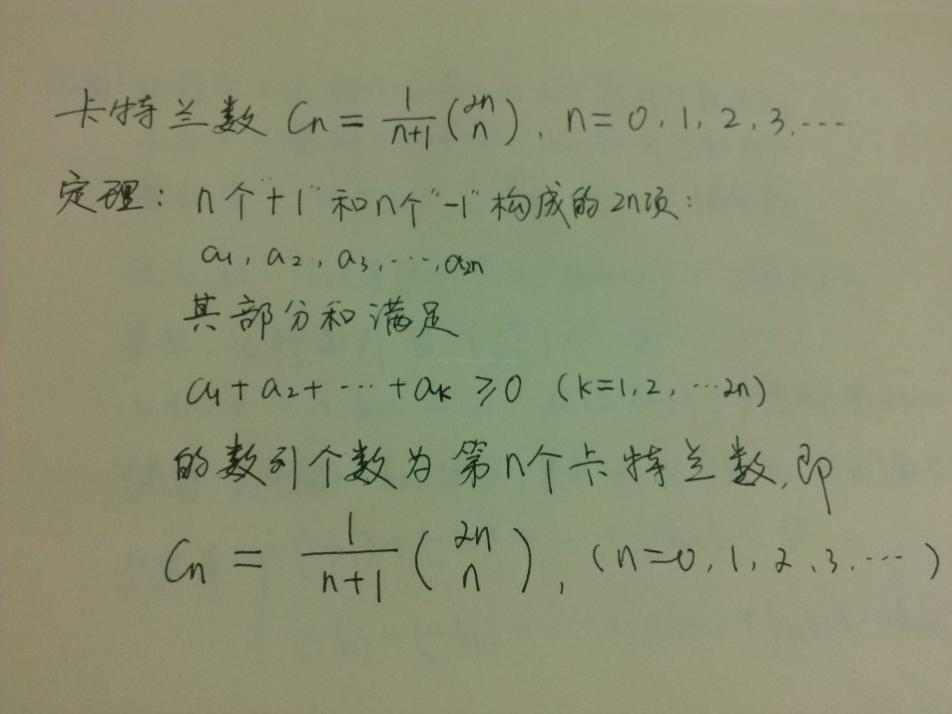 卡特兰数 Cn = \frac{1}{n+1} \binom{2n}{n}, n = 0, 1, 2, 3, ...
定理: n个"+1"和n个"-1"构成的2n项:
a₁, a₂, a₃, ..., a₂ₙ
其部分和满足
a₁ + a₂ + ... + aₖ ≥ 0 (k=1,2,...2n)
的数列个数为第n个卡特兰数,即
Cn = \frac{1}{n+1} \binom{2n}{n}, (n=0,1,2,3,...)